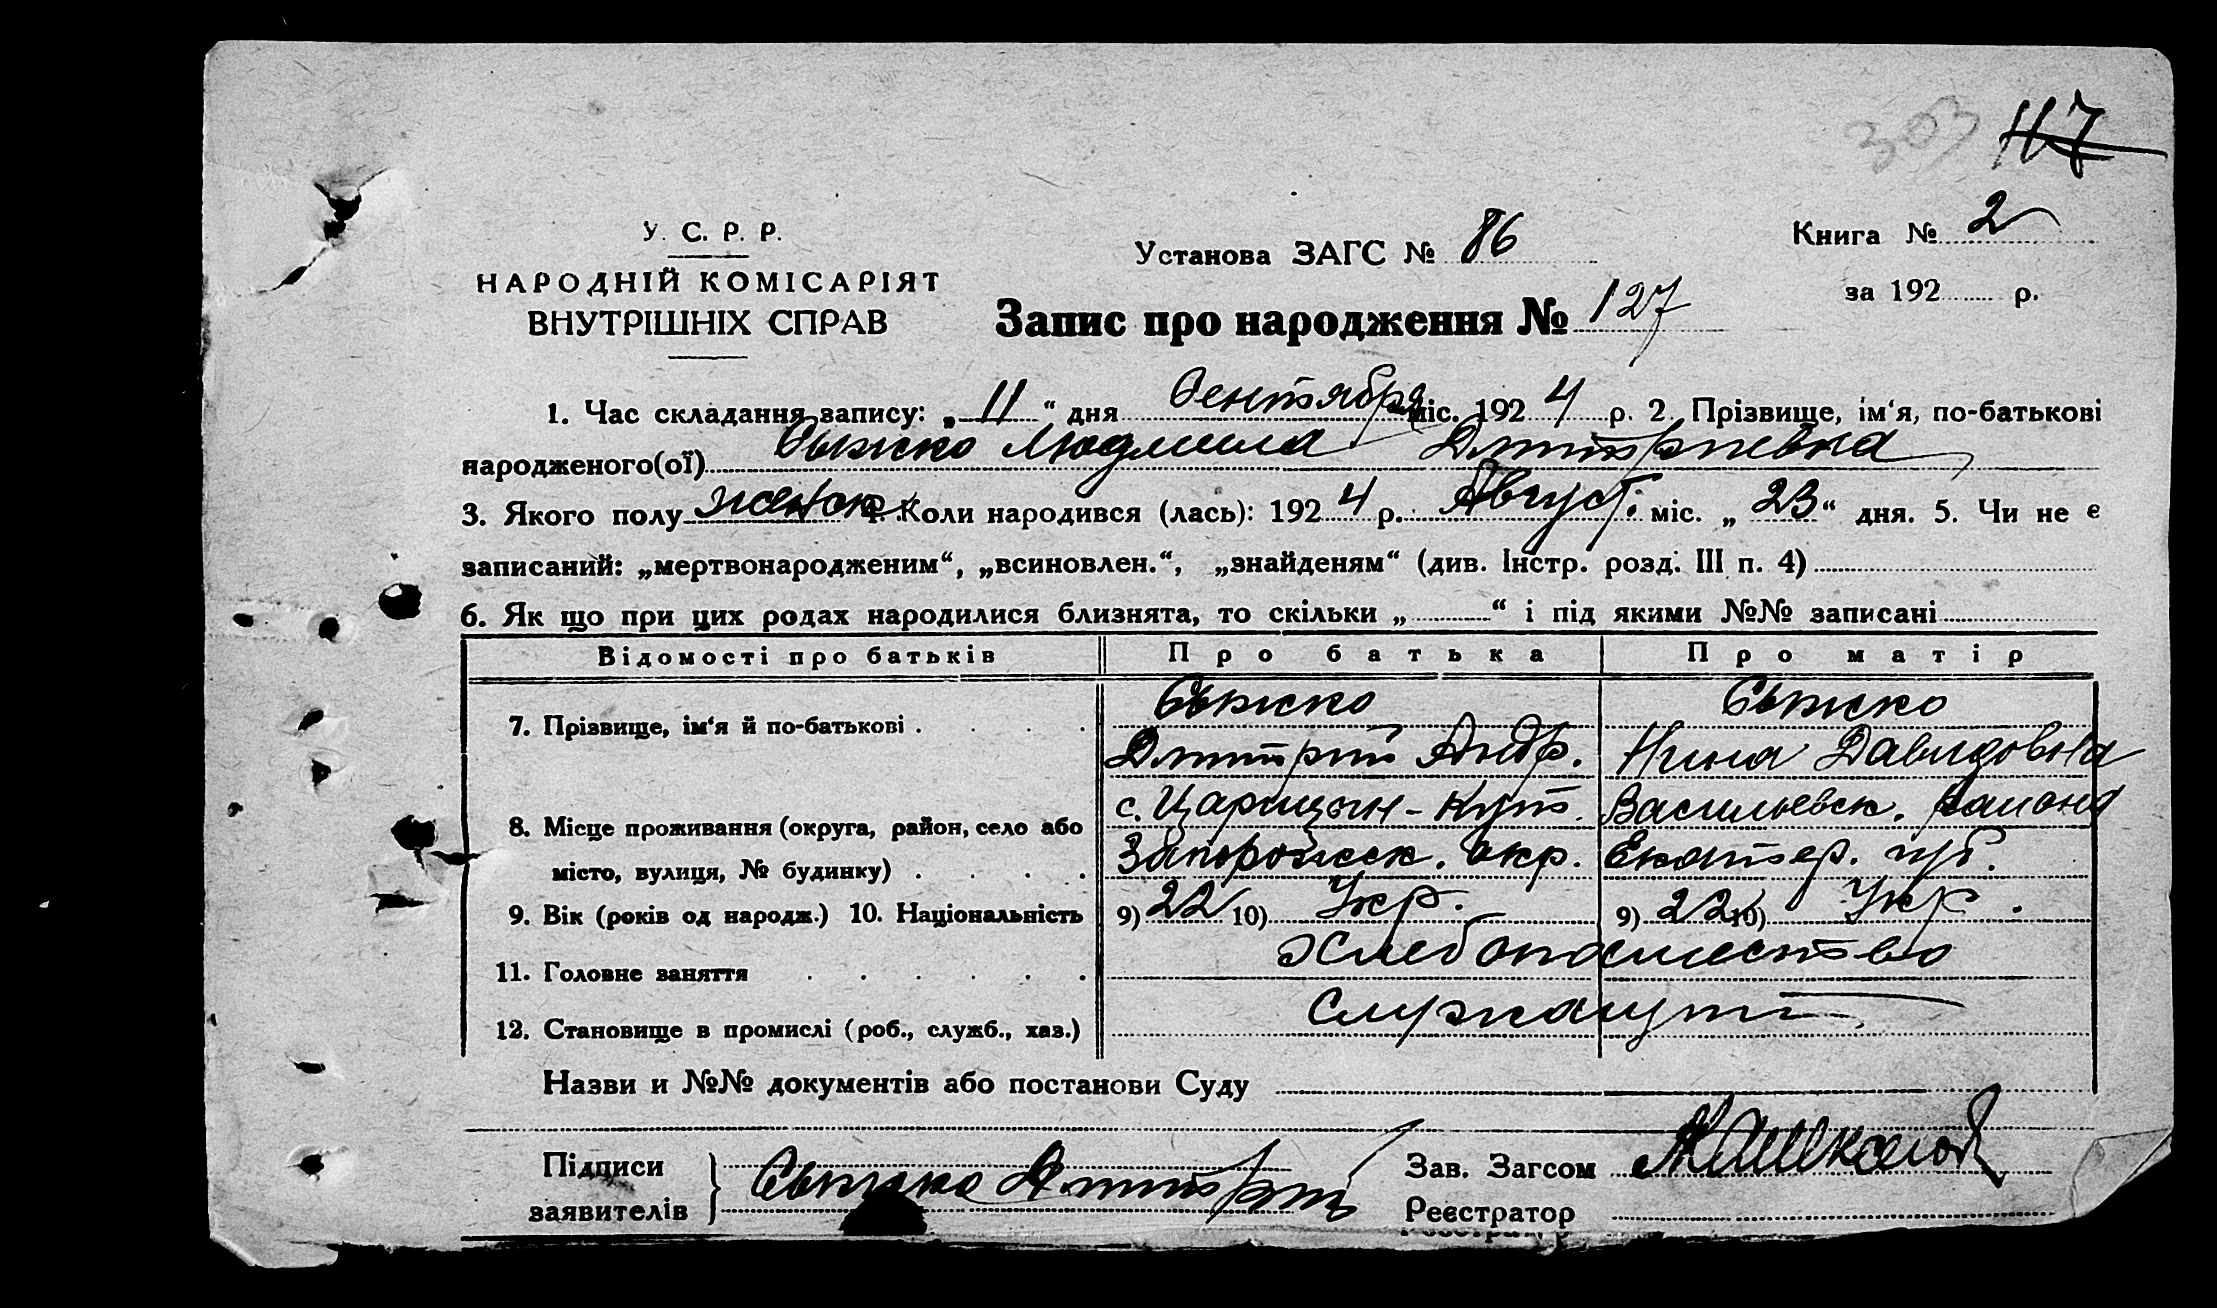 303 117
У. С. Р. Р.
НАРОДНІЙ КОМІСАРІЯТ
ВНУТРІШНІХ СПРАВ
Установа ЗАГС № 86
Книга № 2
за 192 р.
Запис про народження № 127
1. Час складання запису: „ 11 “ дня Сентября міс. 192 4 р. 2. Прізвище, ім‘я, по-батькові
народженого(ої) Людмила Дмитриевна
3. Якого полу женск 4. Коли народився (лась): 192 4 р. Август. міс. „ 23 “ дня. 5. Чи не є
записаний: „мертвонародженим“, „всиновлен.“, „знайденям“ (див. Інстр. розд. III п. 4)
6. Як що при цих родах народилися близнята, то скільки „ “ і під якими №№ записані
Відомості про батьків Про батька Про матір
7. Прізвище, ім‘я й по-батькові
Дмитрий Андр. Нина Давидовна
8. Місце проживання (округа, район, село або с. Царицын-Кут. Васильевск. Района
місто, вулиця, № будинку) Запорожск. окр. Екатер. губ.
9. Вік (років од народж.) 10. Національність 9) 22 10) Укр. 9) 22 10) Укр.
11. Головне заняття Хлебопашество
12. Становище в промислі (роб., служб., хаз.)
Назви и №№ документів або постанови Суду
Підписи
заявителів Дмитрий
Зав. Загсом
Реєстратор